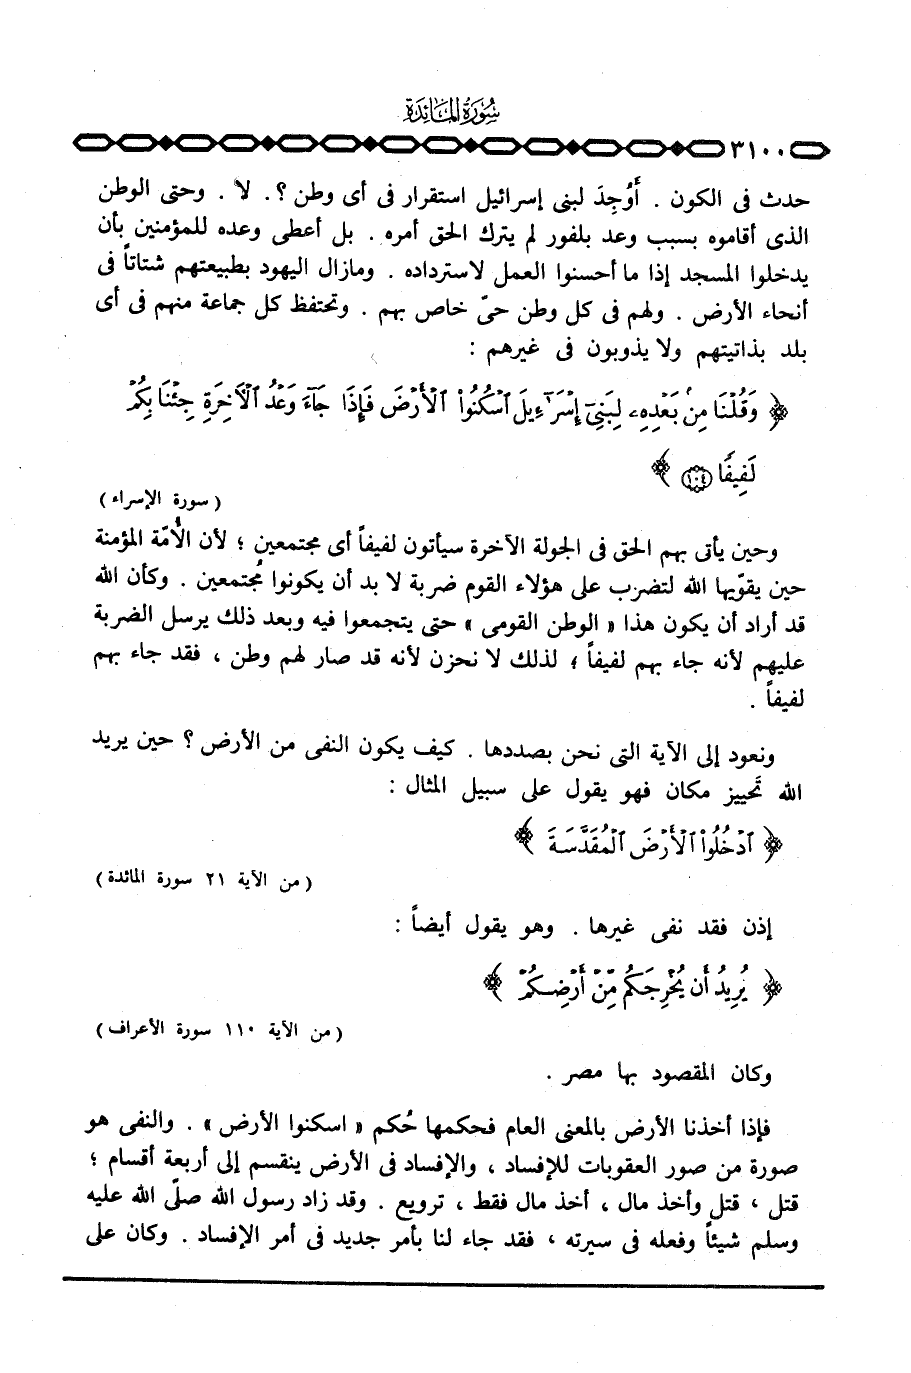 سُورَةُ المَائِدَةِ
٣١٠٠
حدث فى الكون . أَوُجِدَ لبنى إسرائيل استقرار فى أى وطن ؟. لا . وحتى الوطن
الذى أقاموه بسبب وعد بلفور لم يترك الحق أمره . بل أعطى وعده للمؤمنين بأن
يدخلوا المسجد إذا ما أحسنوا العمل لاسترداده . ومازال اليهود بطبيعتهم شتاتاً فى
أنحاء الأرض . ولهم فى كل وطن حىّ خاص بهم . وتحتفظ كل جماعة منهم فى أى
بلد بذاتيتهم ولا يذوبون فى غيرهم :
﴿ وَقُلْنَا مِنۢ بَعْدِهِۦ لِبَنِىٓ إِسْرَٰٓءِيلَ ٱسْكُنُوا۟ ٱلْأَرْضَ فَإِذَا جَآءَ وَعْدُ ٱلْـَٔاخِرَةِ جِئْنَا بِكُمْ
لَفِيفًا ١٠٤ ﴾
( سورة الإسراء )
وحين يأتى بهم الحق فى الجولة الآخرة سيأتون لفيفاً أى مجتمعين ؛ لأن الأُمّة المؤمنة
حين يقوّيها الله لتضرب على هؤلاء القوم ضربة لا بد أن يكونوا مُجتمعين . وكأن الله
قد أراد أن يكون هذا « الوطن القومى » حتى يتجمعوا فيه وبعد ذلك يرسل الضربة
عليهم لأنه جاء بهم لفيفاً ؛ لذلك لا نحزن لأنه قد صار لهم وطن ، فقد جاء بهم
لفيفاً .
ونعود إلى الآية التى نحن بصددها . كيف يكون النفى من الأرض ؟ حين يريد
الله تَحييز مكان فهو يقول على سبيل المثال :
﴿ ٱدْخُلُوا۟ ٱلْأَرْضَ ٱلْمُقَدَّسَةَ ﴾
( من الآية ٢١ سورة المائدة )
إذن فقد نفى غيرها . وهو يقول أيضاً :
﴿ يُرِيدُ أَن يُخْرِجَكُم مِّنْ أَرْضِكُمْ ﴾
( من الآية ١١٠ سورة الأعراف )
وكان المقصود بها مصر .
فإذا أخذنا الأرض بالمعنى العام فحكمها حُكم « اسكنوا الأرض » . والنفى هو
صورة من صور العقوبات للإفساد ، والإفساد فى الأرض ينقسم إلى أربعة أقسام ؛
قتل ، قتل وأخذ مال ، أخذ مال فقط ، ترويع . وقد زاد رسول الله صلّى الله عليه
وسلم شيئاً وفعله فى سيرته ، فقد جاء لنا بأمر جديد فى أمر الإفساد . وكان على